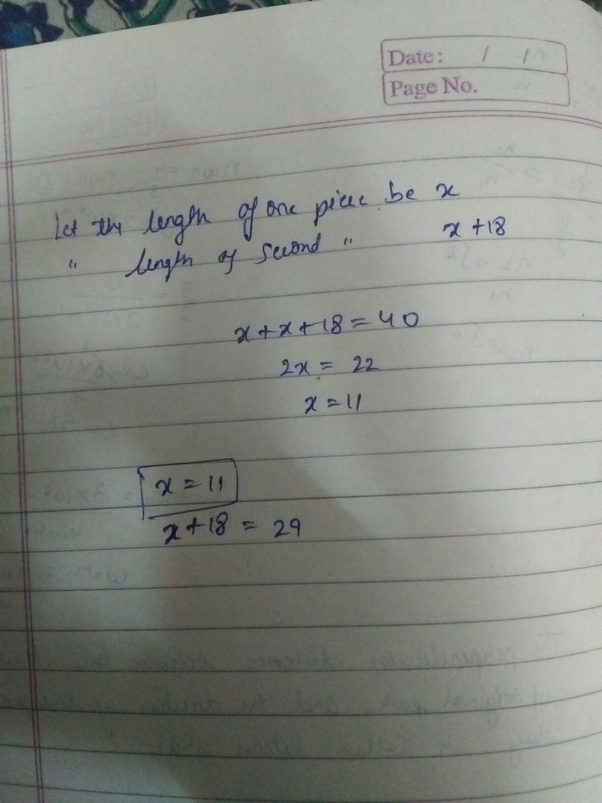 Date: / /
Page No.
Let the length of one piece be x
" length of second " x+18
x+x+18=40
2x = 22
x=11
x = 11
x+18 = 29